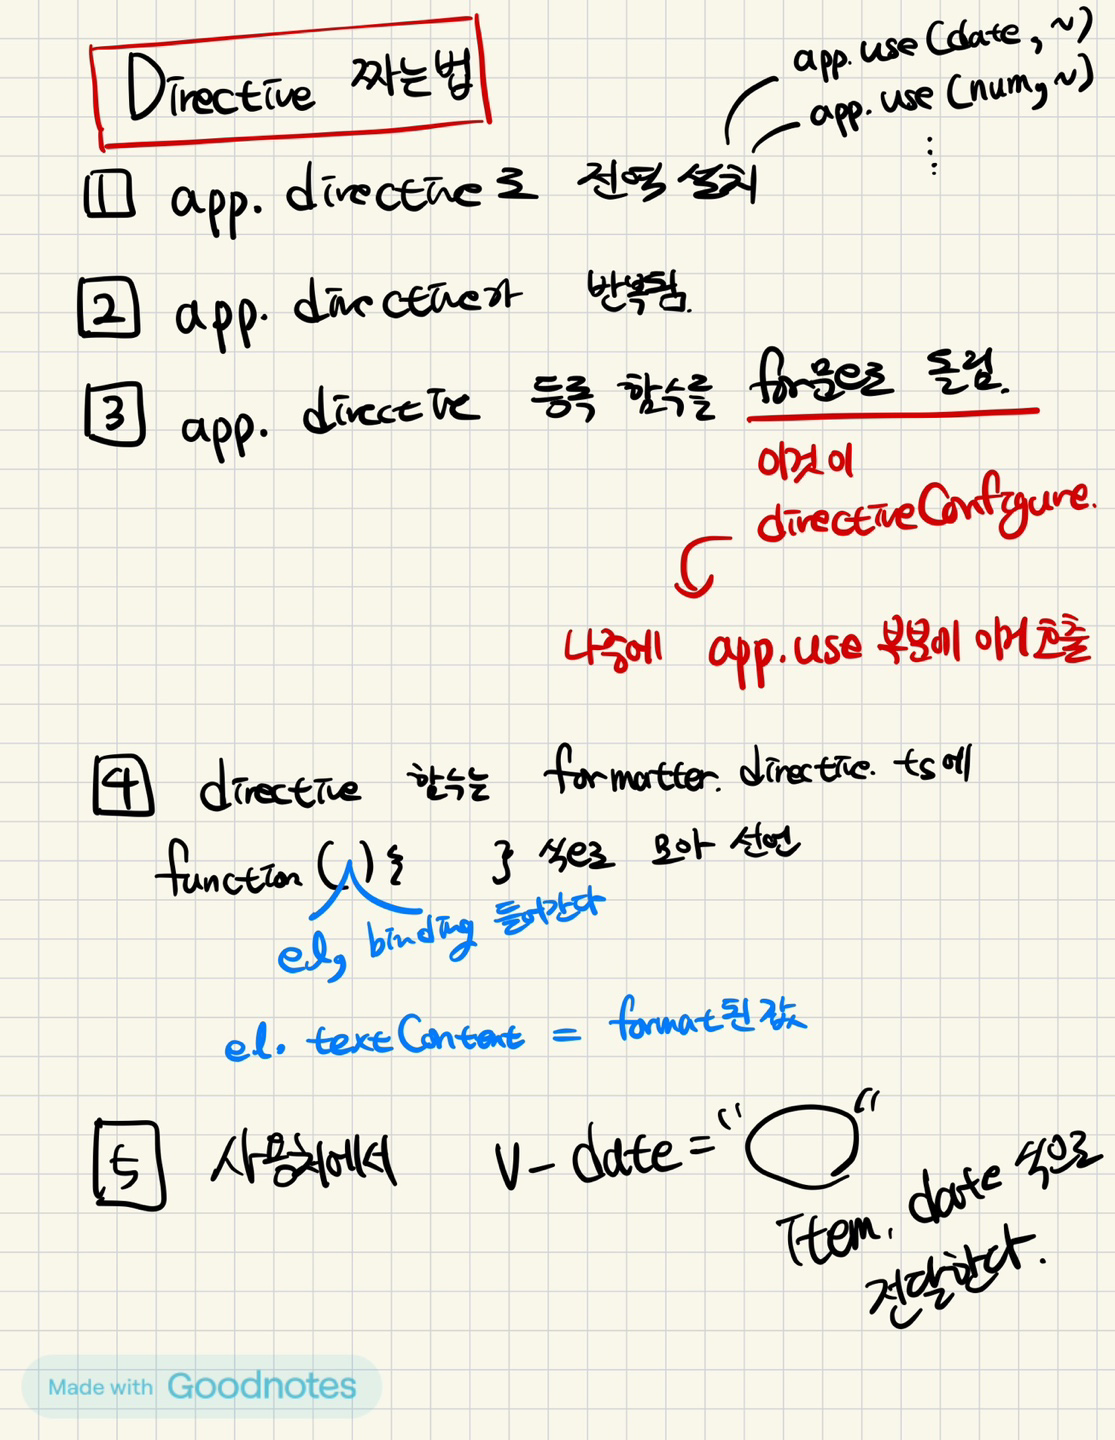 Directive 짜는법
app.use (date, ~)
app.use (num, ~)
⋮
1 app. directive로 전역 설치
2 app. directive가 반복됨.
3 app. directive 등록 함수를 for문으로 돌림.
이것이
directiveConfigure.
나중에 app.use 부분에 이거 호출
4 directive 함수는 formatter. directive. ts에
function ( ) { } 식으로 모아 선언
el, binding 들어간다
el. textContent = format된 값
5 사용처에서 v-date = " "
Item. date 식으로
전달한다.
Made with Goodnotes